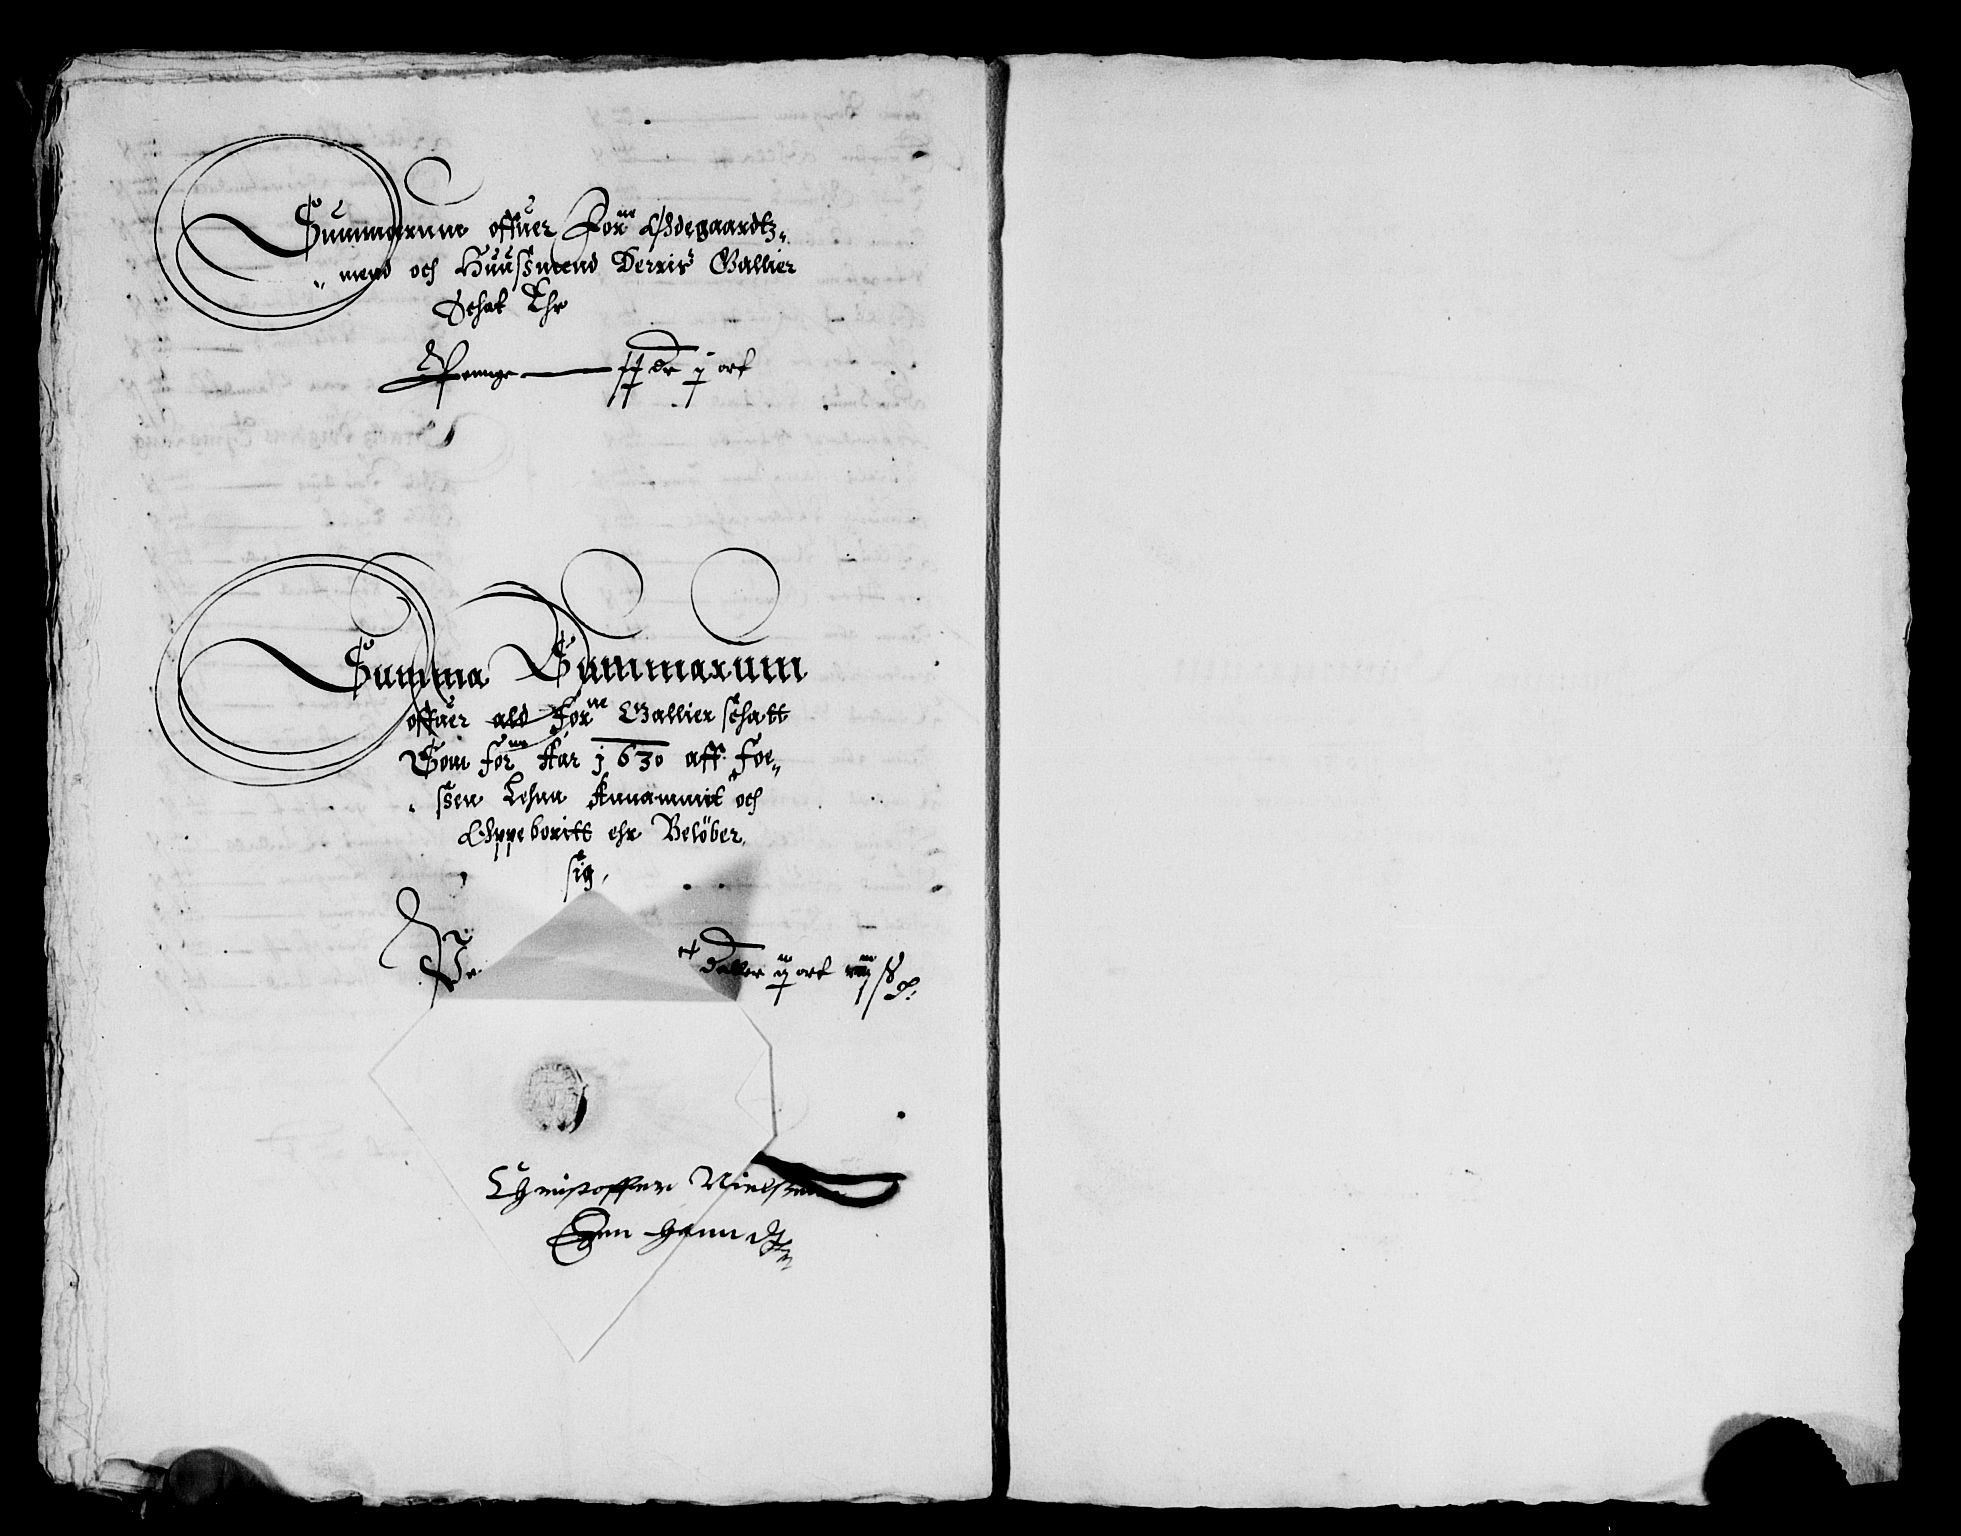 Summarum offuer For^ne Ødegaardtz„
„mend och Huussmend Derris Gallier
Schat Ehr
Penge —— dr j ort
Summa Summarum
offuer ald For^ne Gallier schatt
Som for^ne Aar 1630 aff: Foe„
ssen Lehnn Annammit och
Oppeboritt ehr Belöber
sig,
Pe daller ij ort ß d:
Christoffer Nielssenn
Egen Haanndt